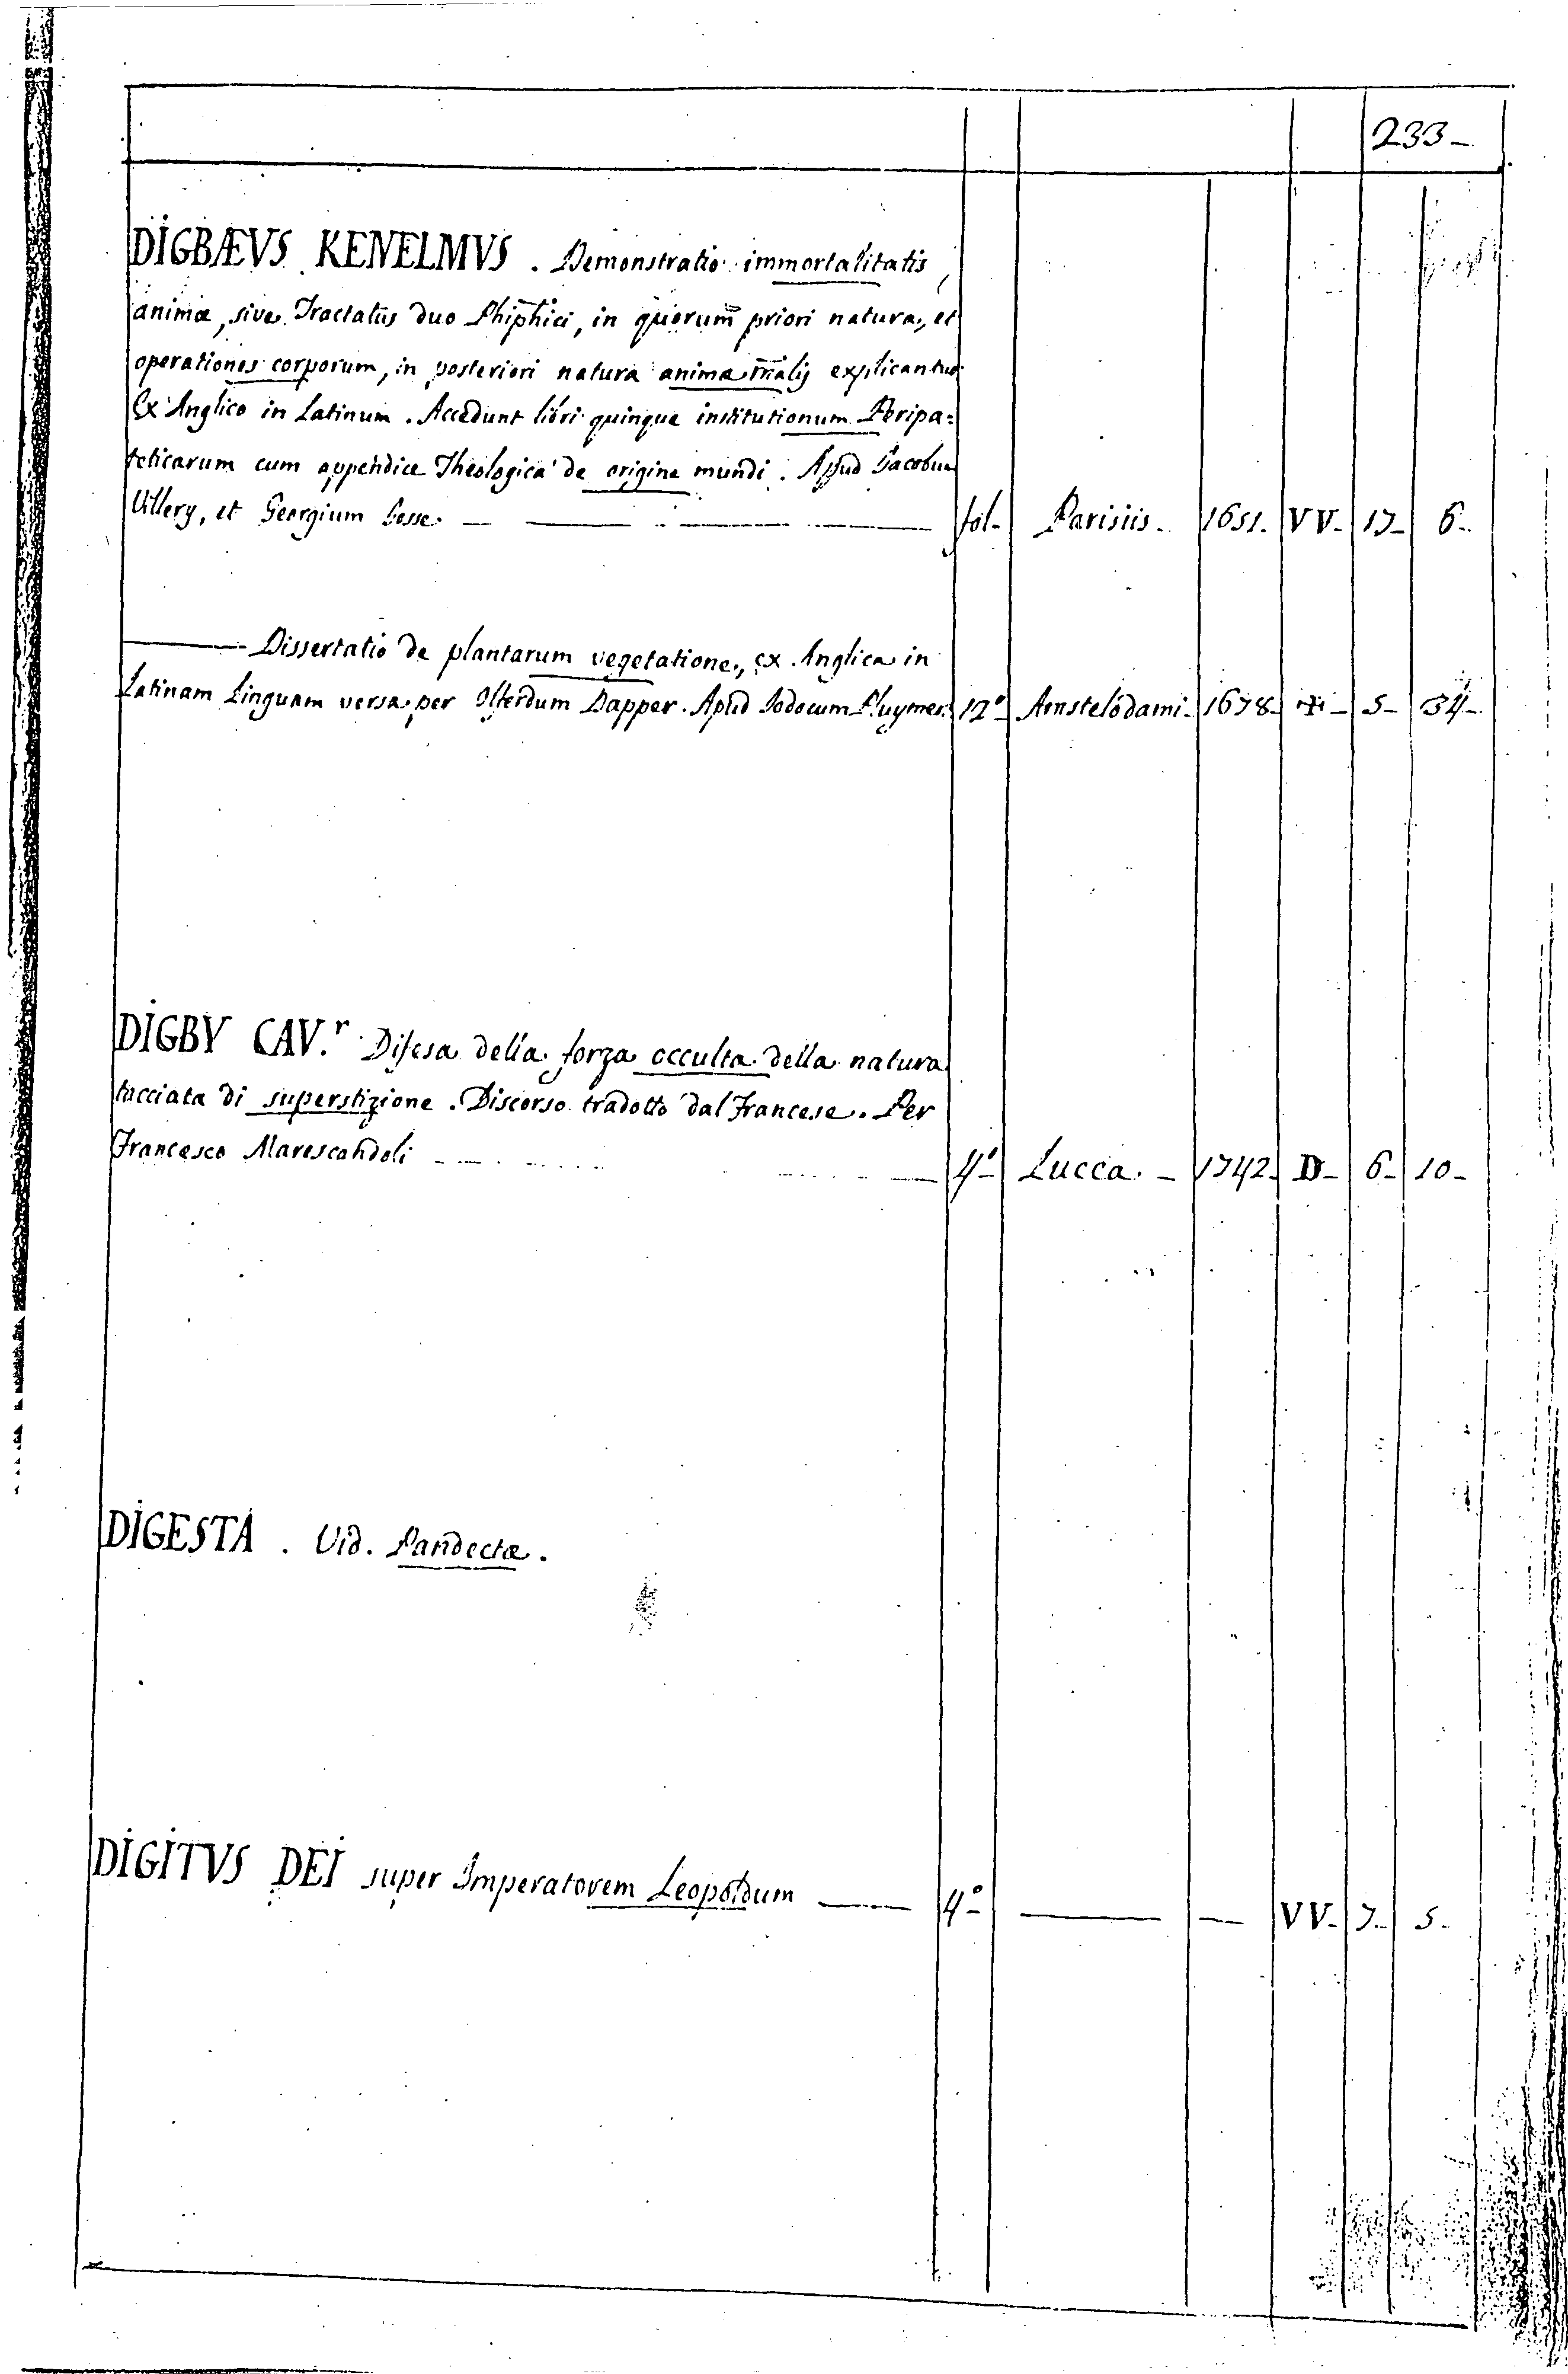 233-
DIGBÆVS KENELMVS. Demonstratio immortalitatis
animæ, sive Tractatus duo Phiphici, in quorum priori natura, et
operationes corporum, in posteriori natura animæ rnalij explicantur
Ex Anglico in Latinum. Accedunt libri quinque institutionum Peripa=
teticarum cum appendice Theologica de origine mundi. Apud Jacobum
Villery, et Georgium Josse. fol- Parisiis. 1651. VV- 17- 6-
Dissertatio de plantarum vegetatione, ex Anglica in
Latinam Linguam versa, per Olferdum Dapper. Apud Jodocum Pluymer. 12º- Amstelodami- 1678- 5- 34-
DIGBY CAV.r Difesa della forza occulta della natura
tacciata di superstizione. Discorso tradotto dal Francese. Per
Francesco Marescandoli 4º- Lucca. - 1742- D- 6- 10-
DIGESTA. Vid. Pandectæ.
DIGITVS DEI super Imperatorem Leopoldum 4º- VV- 7- 5-